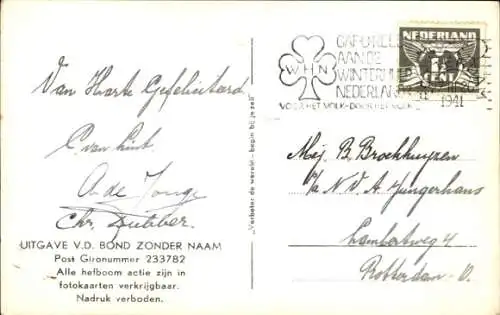 Van Harte Gefeliciteerd
C. van Lint
A. de Jonge
Chr. Dubber.
UITGAVE V.D. BOND ZONDER NAAM
Post Gironummer 233782
Alle hefboom actie zijn in
fotokaarten verkrijgbaar.
Nadruk verboden.
„Verbeter de wereld - begin bij je zelf"
WHN
AAN DE
VOOR HET VOLK-DOOR HET VOLK
1941
NEDERLAND
CENT
Mej. B. Brockhuijzen
p/a N.V. A. Jungerhans
Lambertweg 4
Rotterdam-O.